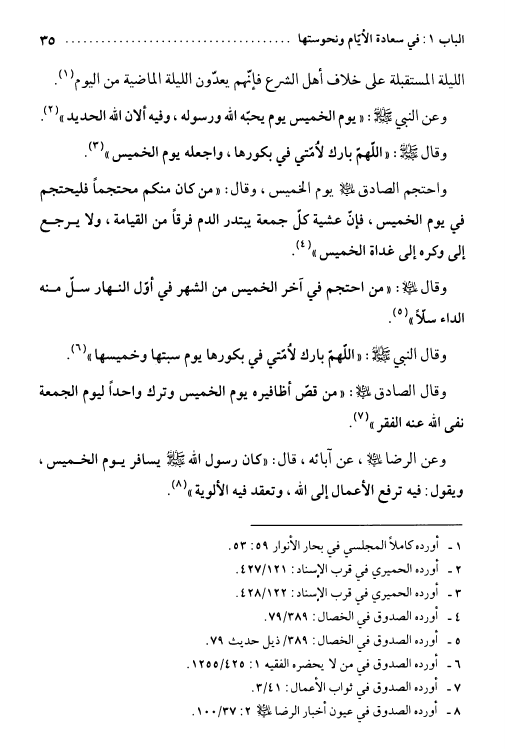 الباب ١ : في سعادة الأيّام ونحوستها ..................................... ٣٥
الليلة المستقبلة على خلاف أهل الشرع فإنّهم يعدّون الليلة الماضية من اليوم(١).
وعن النبي ﷺ : « يوم الخميس يوم يحبّه الله ورسوله ، وفيه ألان الله الحديد »(٢).
وقال ﷺ : « اللهمّ بارك لأمّتي في بكورها ، واجعله يوم الخميس »(٣).
واحتجم الصادق عليه السلام يوم الخميس ، وقال: « من كان منكم محتجماً فليحتجم
في يوم الخميس ، فإنّ عشية كلّ جمعة يبتدر الدم فرقاً من القيامة ، ولا يـرجـع
إلى وكره إلى غداة الخميس »(٤).
وقال عليه السلام : « من احتجم في آخر الخميس من الشهر في أوّل النـهار سـلّ مـنه
الداء سلّاً »(٥).
وقال النبي ﷺ : « اللهمّ بارك لأمّتي في بكورها يوم سبتها وخميسها »(٦).
وقال الصادق عليه السلام : « من قصّ أظافيره يوم الخميس وترك واحداً ليوم الجمعة
نفى الله عنه الفقر »(٧).
وعن الرضا عليه السلام ، عن آبائه ، قال: « كان رسول الله ﷺ يسافر يـوم الخـميس ،
ويقول : فيه ترفع الأعمال إلى الله ، وتعقد فيه الألوية »(٨).
١ ـ أورده كاملاً المجلسي في بحار الأنوار ٥٩ : ٥٣.
٢ ـ أورده الحميري في قرب الإسناد : ٤٢٧/١٢١.
٣ ـ أورده الحميري في قرب الإسناد : ٤٢٨/١٢٢.
٤ ـ أورده الصدوق في الخصال : ٧٩/٣٨٩.
٥ ـ أورده الصدوق في الخصال : ٣٨٩/ ذيل حديث ٧٩.
٦ ـ أورده الصدوق في من لا يحضره الفقيه ١ : ١٢٥٥/٤٢٥.
٧ ـ أورده الصدوق في ثواب الأعمال : ٣/٤١.
٨ ـ أورده الصدوق في عيون أخبار الرضا عليه السلام ٢ : ١٠٠/٣٧.